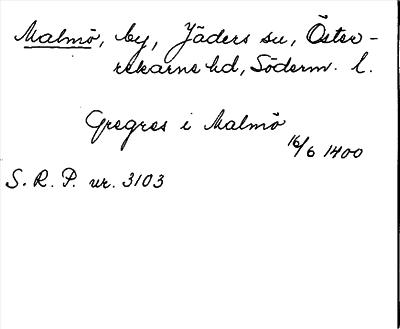 Malmö, by, Jäders sn, Öster-
rekarne hd, Söderm. l.
Gregres i Malmö
16/6 1400
S. R. P. nr. 3103